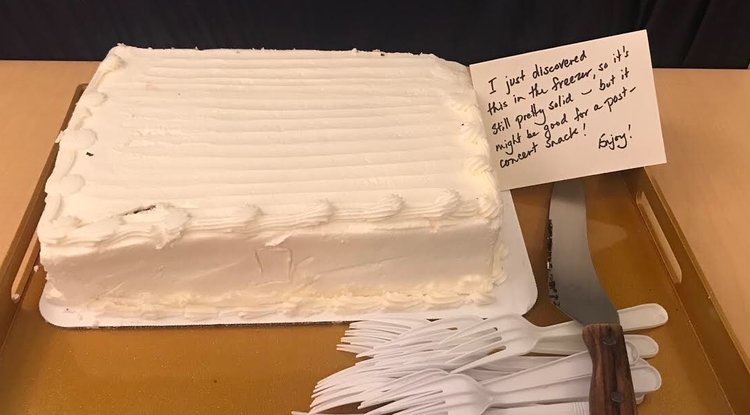 I just discovered
this in the freezer, so it's
still pretty solid – but it
might be good for a post-
concert snack!
Enjoy!